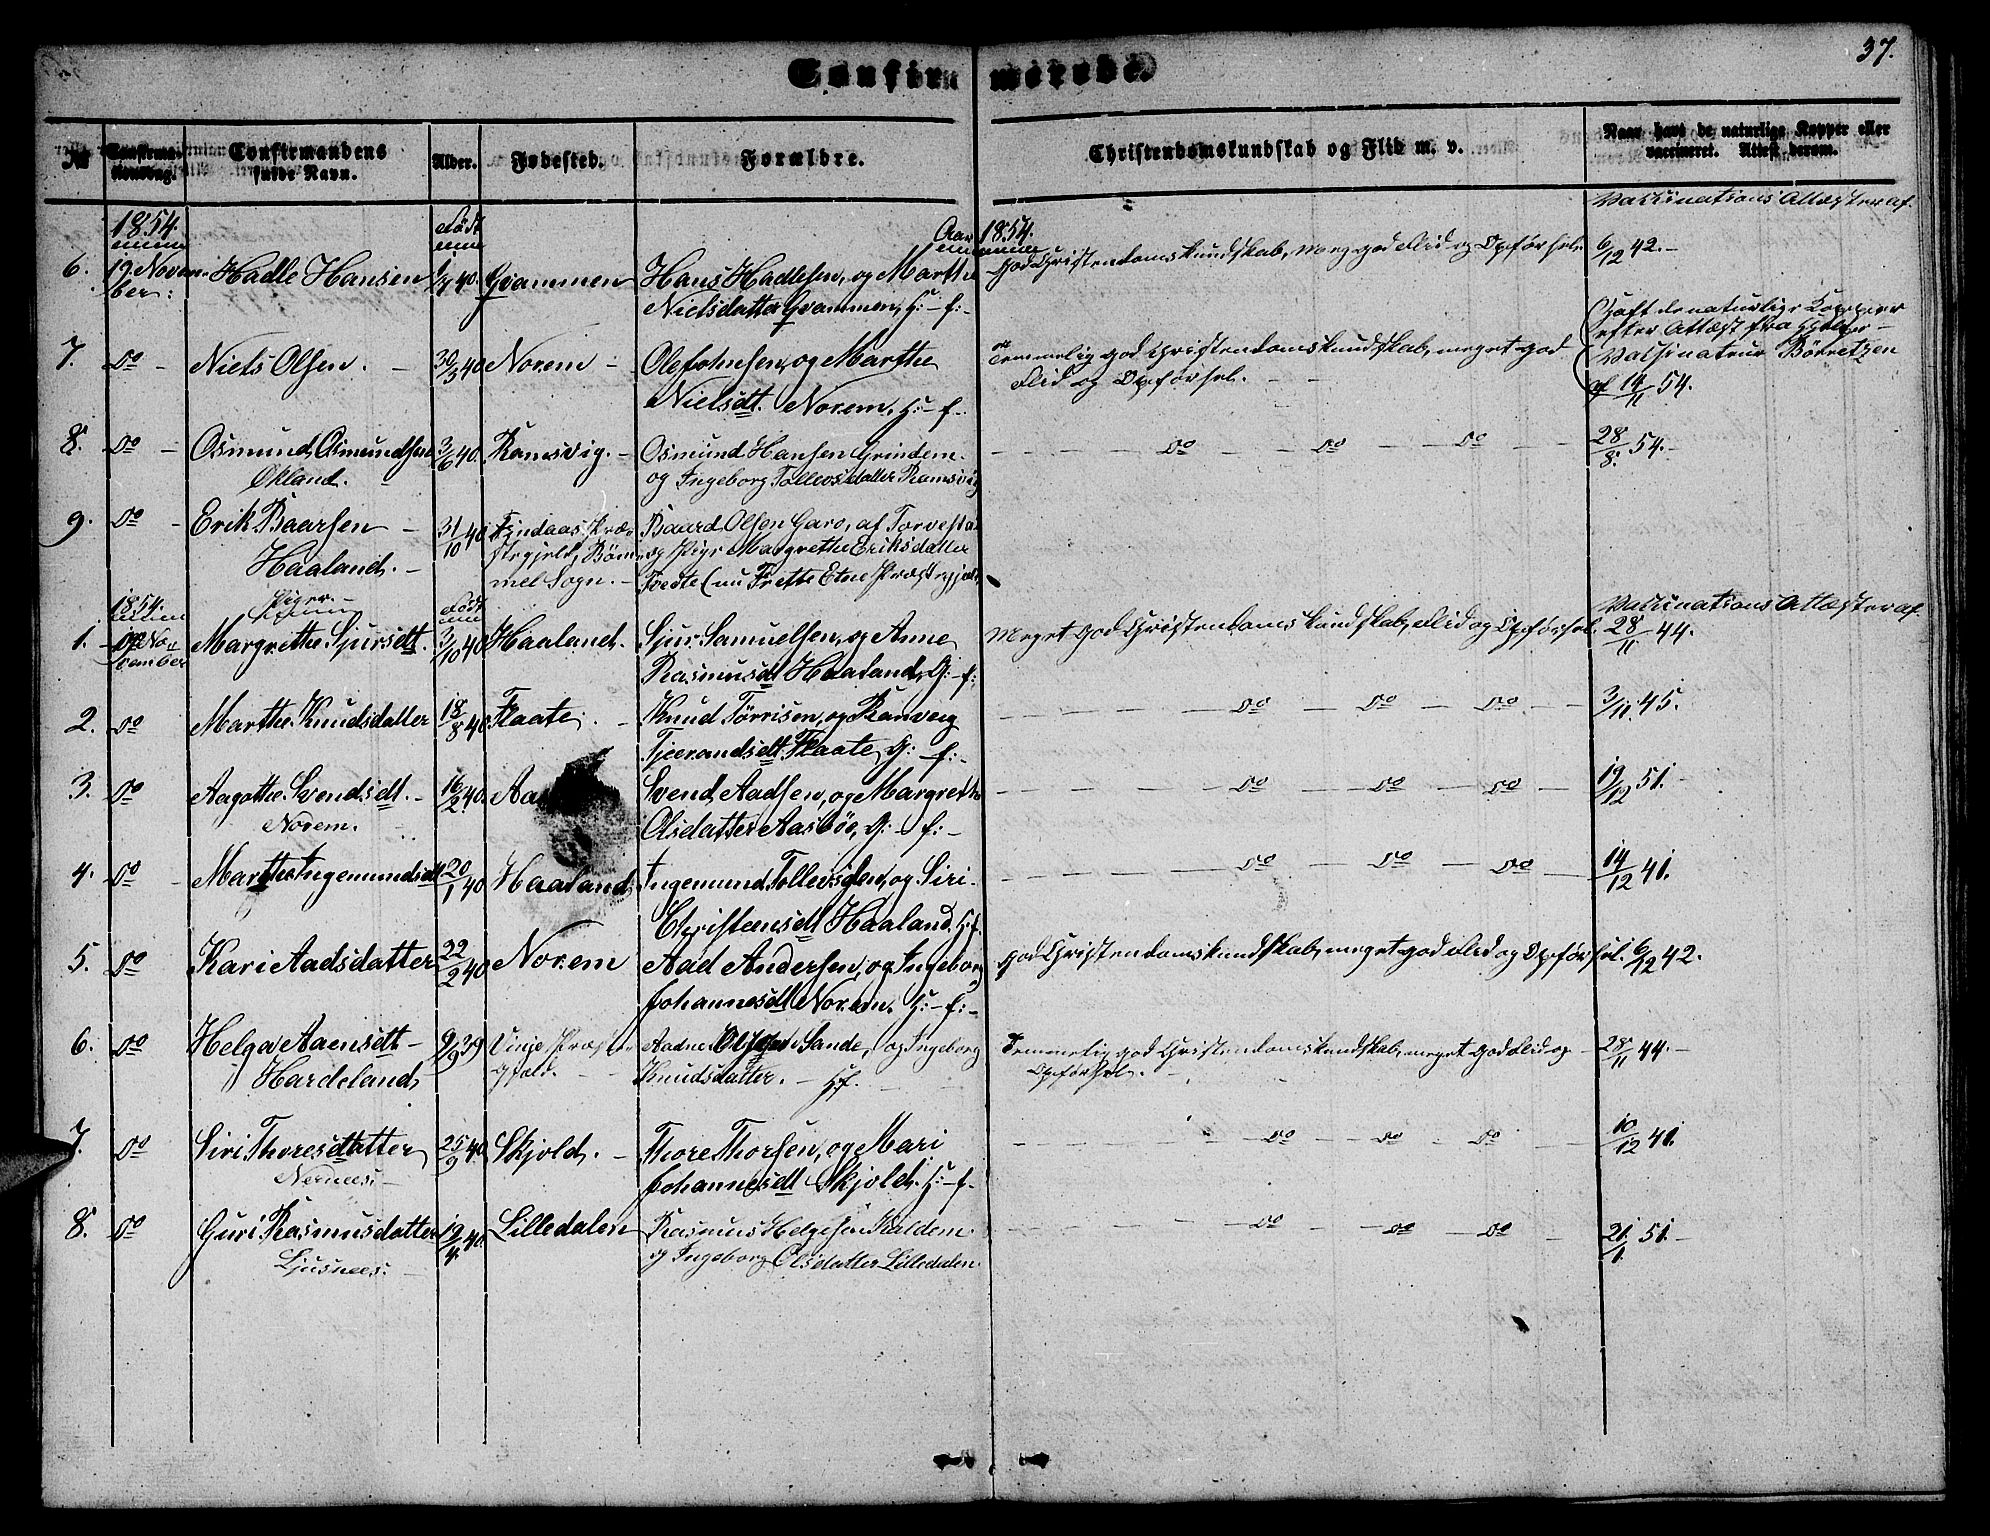 Confirmerede.
37.
№
Confirma-
tionsdag.
Confirmandens
fulde Navn.
Alder.
Fødested.
Forældre.
Christendomskundskab og Flid m. v.
Naar havt de naturlige Kopper eller
vaccineret. Attest derom.
1854.
Født
Aar 1854.
Vaccinations Attester af.
6. 19 Novem-
ber: Hadle Hansen 40. Qvammen Hans Hadlesen, og Marthe
Nielsdatter Qvammen, H: - f:-
God Christendomskundskab, meg. god Flid og Opførsel. 6/12 42.-
7. Do - Niels Olsen. - 30/3 40 Norem - Ole Johnsen, og Marthe
Nielsdt. Norem. H:- f:-
Temmelig god Christendomskundskab, meget god
Flid og Opførsel. - -
Haft de naturlige Kopper
efter Attest fra Hjelpe-
Vaccinateur Børretzen
af 14/11 54.
8. Do - Osmund Osmundsen
Økland. 3/6 40. Ramsvig. - Osmund Hansen Grindem
og Ingeborg Tollevsdatter Ramsvig
Do Do Do 28/8. 54.-
9. Do - Erik Baarsen -
Haaland. - 31/10 40 Findaas Præ-
stegjeld, Bøm-
mel Sogn. - Baard Olsen Garo, af Torvestad
og Pige Margrethe Eriksdatter
(nu Frette Etne Præstegjeld)
1854.
Piger.
Født
Vaccinations Attester af.
1. 19 No-
vember Margrethe Sjursdt. 3/10 40 Haaland. Sjur Samuelsen, og Anne
Rasmusdt Haaland, G:- f:
Meget god Christendomskundskab, Flid og Opførsel. 28/11 44.
2. Do Marthe Knudsdatter 18/8 40 Flaate. - Knud Tørrisen, og Ranveig
Tjerandsdt Flaate, G: - f:-
Do Do Do 3/11. 45.
3. Do Aagothe Svendsdt. -
Norem. 16/2 40. Aas Svend Aadsen, og Margrethe
Olsdatter Aasbøe, G: - f:-
Do Do Do 19/12 51.-
4. Do - Marthe Ingemundsdt 20/1 40 Haaland, Ingemund Tollevsen, og Siri
Christensdt Haaland. H: f.
Do Do Do 14/12 41.
5. Do Kari Aadsdatter 22/2 40 Norem Aad Andersen, og Ingeborg
Johannesdt Norem. H:- f:-
God Christendomskundskab, meget god Flid og Opførsel. 6/12 42.
6. Do Helga Aaensdt -
Hardeland, 9/9 39 Vinje Præste-
gjeld. - Aadne Olsen Sande, og Ingeborg
Knudsdatter. - H: f.
Temmelig god Christendomskundskab, meget god Flid og
Opførsel. - 28/11 44.-
7. Do Siri Thoresdatter
Nernees. - 25/9 40 Skjold. - Thore Thorsen, og Mari
Johannesdt Skjold. H:- f.
Do Do Do 10/12 41.
8. Do Guri Rasmusdatter
Ljusnees. - 19/4. 40. Lilledalen Rasmus Helgesen Kaldem
og Ingeborg Olsdatter Lilledalen.
Do Do Do 21/1. 51.-